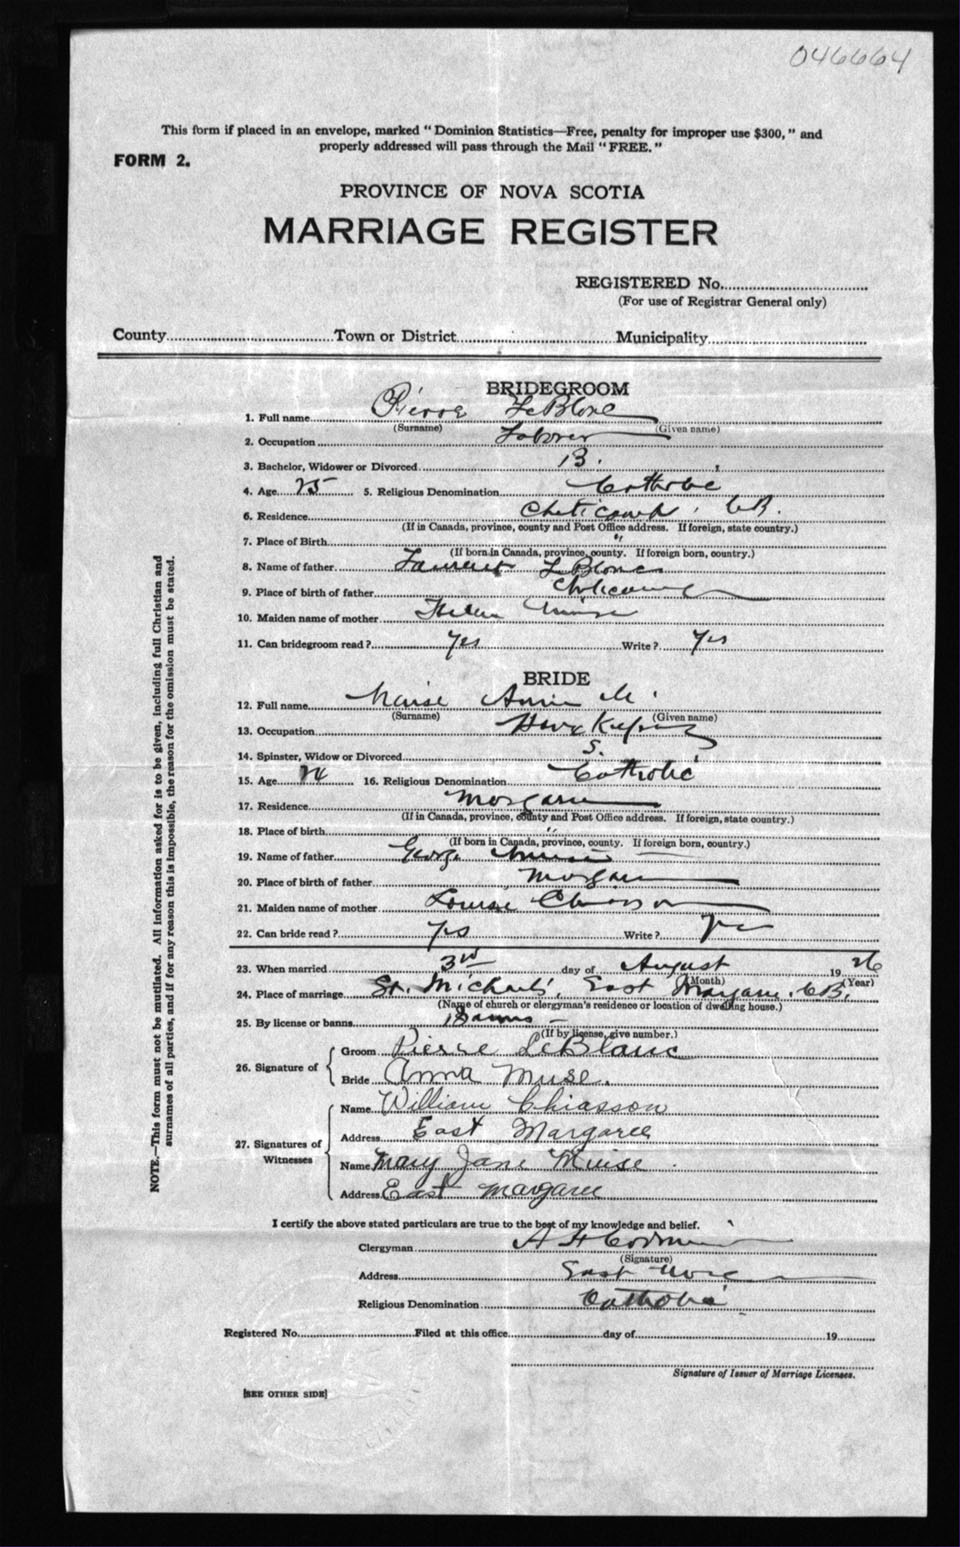 046664
This form if placed in an envelope, marked "Dominion Statistics—Free, penalty for improper use $300," and
properly addressed will pass through the Mail "FREE."
FORM 2.
PROVINCE OF NOVA SCOTIA
MARRIAGE REGISTER
REGISTERED No.
(For use of Registrar General only)
County Town or District Municipality
BRIDEGROOM
1. Full name Pierre LeBlanc
(Surname) (Given name)
2. Occupation Laborer
3. Bachelor, Widower or Divorced B.
4. Age 25 5. Religious Denomination Catholic
6. Residence Cheticamp, C.B.
(If in Canada, province, county and Post Office address. If foreign, state country.)
7. Place of Birth "
(If born in Canada, province, county. If foreign born, country.)
8. Name of father Laurent LeBlanc
9. Place of birth of father Cheticamp
10. Maiden name of mother Helen
11. Can bridegroom read? Yes Write? Yes
BRIDE
12. Full name Muise Annie M.
(Surname) (Given name)
13. Occupation
14. Spinster, Widow or Divorced S.
15. Age 16. Religious Denomination Catholic
17. Residence Margaree
(If in Canada, province, county and Post Office address. If foreign, state country.)
18. Place of birth "
(If born in Canada, province, county. If foreign born, country.)
19. Name of father George Muise
20. Place of birth of father Margaree
21. Maiden name of mother Louise Chiasson
22. Can bride read? Yes Write? Yes
23. When married 3rd day of August 1926
(Month) (Year)
24. Place of marriage St. Michael's, East Margaree, C.B.
(Name of church or clergyman's residence or location of dwelling house.)
25. By license or banns Banns
(If by license, give number.)
26. Signature of
Groom Pierre LeBlanc
Bride Anna Muse.
27. Signatures of Witnesses
Name William Chiasson
Address East Margaree
Name Mary Jane Muise
Address East Margaree
I certify the above stated particulars are true to the best of my knowledge and belief.
Clergyman A H Cormier
(Signature)
Address East
Religious Denomination Catholic
Registered No. Filed at this office day of 19
Signature of Issuer of Marriage Licenses.
[SEE OTHER SIDE]
NOTE.—This form must not be mutilated. All information asked for is to be given, including full Christian and
surnames of all parties, and if for any reason this is impossible, the reason for the omission must be stated.